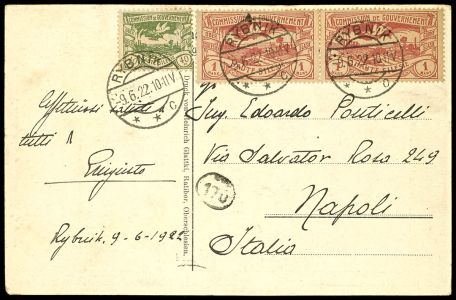 COMMISSION DE GOUVERNEMENT
COMMISSION DE GOUVERNEMENT
COMMISSION DE GOUVERNEMENT
40
1 MARK 1
1 MARK 1
RYBNIK
-9.6.22.10-11V
* C *
RYBNIK
-9.6.22.10-11V
* C *
RYBNIK
-9.6.22.10-11V
* C *
Affettuosi saluti a
tutti
Rybnik, 9-6-1922
Druck von Heinrich Glattki, Ratibor, Oberschlesien.
Ing. Edoardo Ponticelli
Via Salvator Rosa 249
Napoli
Italia
170